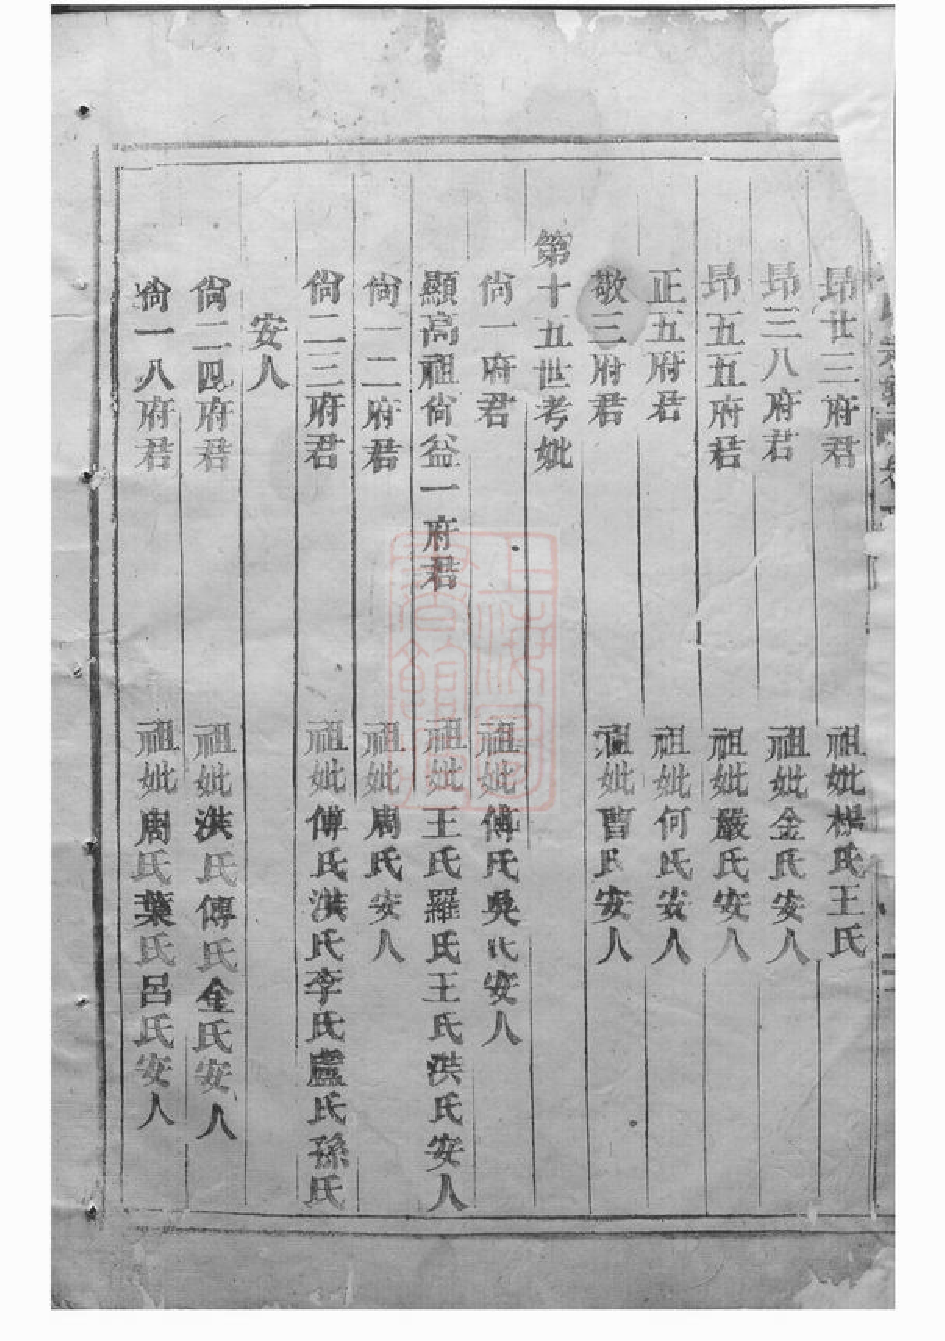 昂廿三府君 祖妣楊氏王氏
昂三八府君 祖妣金氏安人
昂五五府君 祖妣嚴氏安人
正五府君 祖妣何氏安人
敬三府君 祖妣曹氏安人
第十五世考妣
尙一府君 祖妣傅氏吳氏安人
顯高祖尙益一府君 祖妣王氏羅氏王氏洪氏安人
尙一二府君 祖妣周氏安人
尙二三府君 祖妣傅氏洪氏李氏盧氏孫氏
安人
尙二四府君 祖妣洪氏傅氏金氏安人
尙一八府君 祖妣周氏葉氏呂氏安人